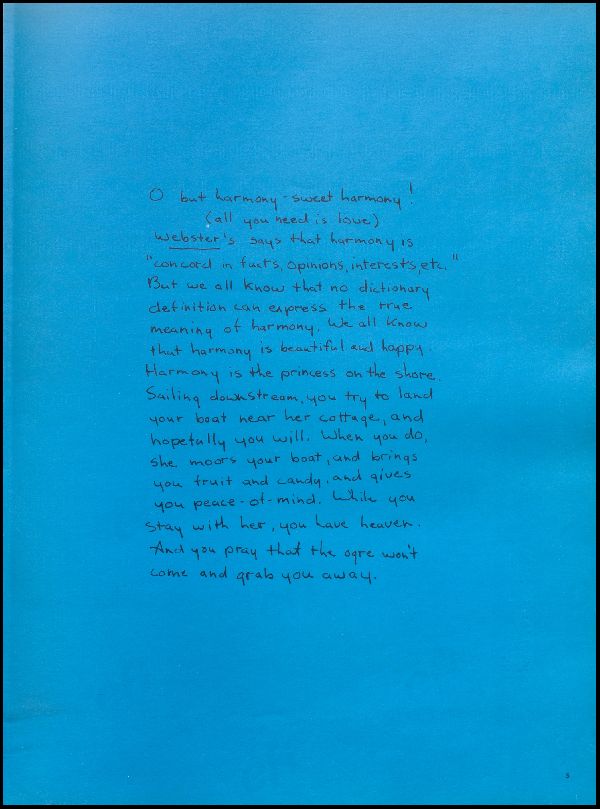 O but harmony - sweet harmony!
(all you need is love)
Webster's says that harmony is
"concord in facts, opinions, interests, etc."
But we all know that no dictionary
definition can express the true
meaning of harmony. We all know
that harmony is beautiful and happy.
Harmony is the princess on the shore.
Sailing downstream, you try to land
your boat near her cottage, and
hopefully you will. When you do,
she moors your boat, and brings
you fruit and candy, and gives
you peace-of-mind. While you
stay with her, you have heaven.
And you pray that the ogre won't
come and grab you away.
5